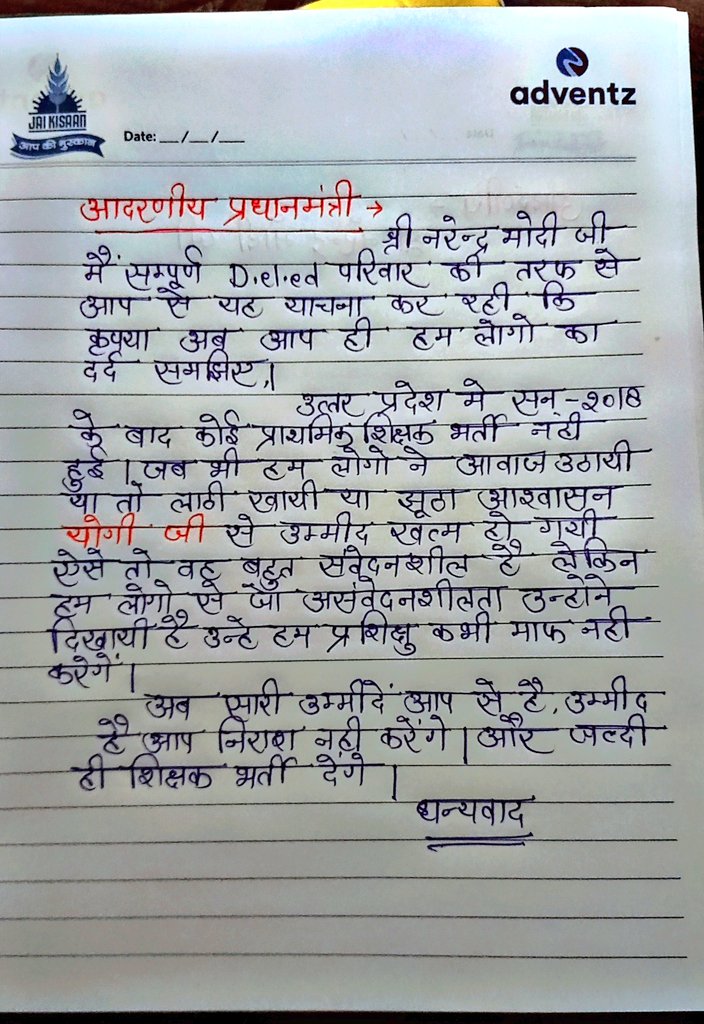 JAI KISAAN
आप की मुस्कान
Date: __/__/__
adventz
आदरणीय प्रधानमंत्री →
श्री नरेन्द्र मोदी जी
मैं सम्पूर्ण D.el.ed परिवार की तरफ से
आप से यह याचना कर रही कि
कृपया अब आप ही हम लोगो का
दर्द समझिए,|
उत्तर प्रदेश मे सन् -२०18
के बाद कोई प्राथमिक शिक्षक भर्ती नही
हुई | जब भी हम लोगो ने आवाज उठायी
या तो लाठी खायी या झूठा आश्वासन
योगी जी से उम्मीद खत्म हो गयी
ऐसे तो वह बहुत संवेदनशील है लेकिन
हम लोगो से जो असंवेदनशीलता उन्होने
दिखायी है उन्हे हम प्रशिक्षु कभी माफ नही
करेगें |
अब सारी उम्मीदें आप से है, उम्मीद
है आप निराश नही करेंगे | और जल्दी
ही शिक्षक भर्ती देंगे |
धन्यवाद